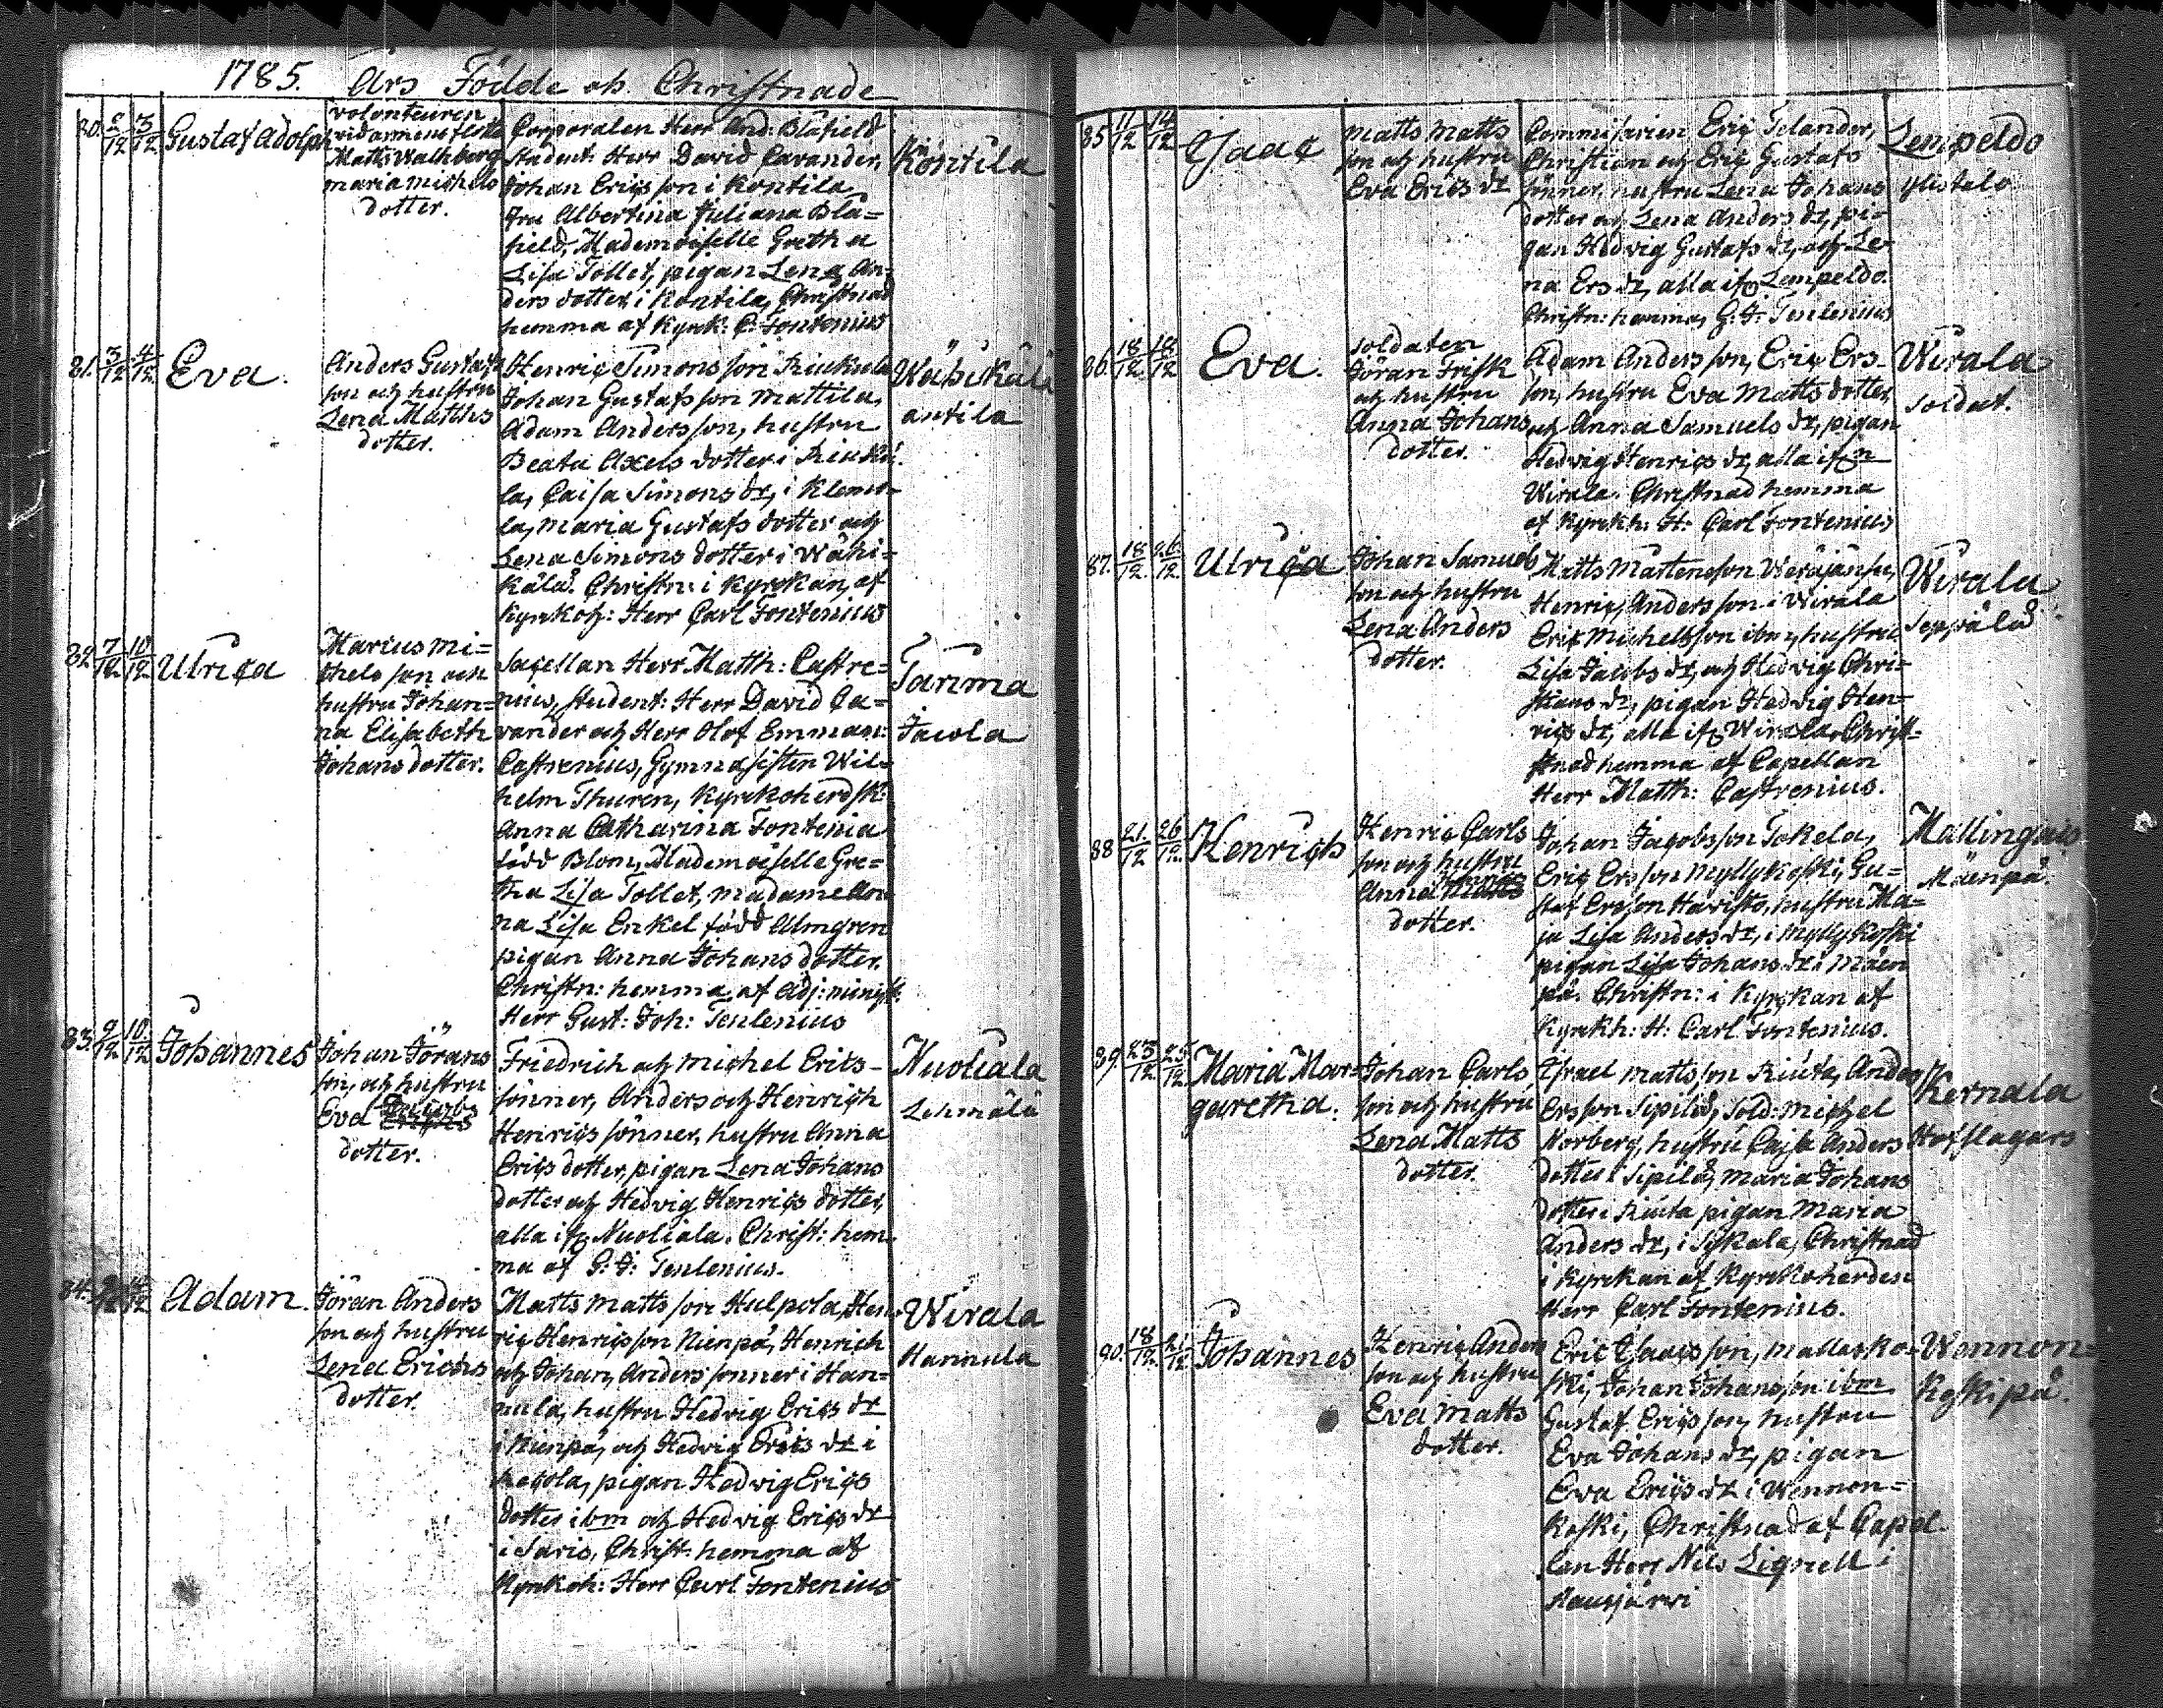 1785. Års Födde och Christnade
80. 2/12 3/12 Gustaf Adolph
volonteuren
vid armens flotta
Matts Walhberg
maria michels
dotter.
Corporalen Herr And: Blåfield
Student: Herr David Cavander,
Johan Ericsson i Kontila
fru Albertina Juliana Blå=
field, Mademoiselle Gretha
Lisa Tollet, pigan Lena An=
ders dotter i Kontila, Christnad
hemma af Kyrck: C: Fontenius
Kontila
81. 3/12 4/12 Eva.
Anders Gustafs
son och hustru
Lena Matths
dotter.
Henric Simons son
Johan Gustafs son Mattila,
Adam Anders son, hustru
Beata Axels dotter i
la, Caisa Simons dr, i Klemo=
la, maria Gustafs dotter och
Lena Simons dotter i Wåhi=
kålå. Christn: i Kyrckan, af
Kyrkoh: Herr Carl Fontenius
Wåhikålå
antila
82. 7/12 10/12 Ulrica
Marius Mi=
chels son och
hustru Johan=
na Elisabeth
Johans dotter.
Sacellan Herr Matth: Castre=
nius, student: Herr David Ca=
vander och Herr Olof Emman:
Castrenius, Gymnasisten Wil=
helm Thuren, Kyrckoherdsk:
Anna Catharina Fontenia
född Blom, Mademoiselle Gre=
tha Lisa Tollet, madame An
na Lisa Enkel född Almgren
pigan Anna Johans dotter.
Christn: hemma af Adj: minist:
Herr Gust: Joh: Tenlenius
Tanima
Jacola
83. 9/12 10/12 Johannes
Johan Jörans
son, och hustru
Eva Jacobs
dotter.
Friedrich och Michel Erics=
sönner, Anders och Henrich
Henrics sönner, hustru Anna
Erics dotter, pigan Lena Johans
dotter och Hedvig Henrics dotter,
alla ifr Nuoliala. Christ: hem=
ma af G: J: Tenlenius.
Nuoliala
Lehmälä
84. Adam.
Jöran Anders
son och hustru
Lena Erichs
dotter.
Matts Matts son Hulpola, Hen=
ric Henrics son Nienpå, Henrich
och Johan, Anders sönner i Han=
nula, hustru Hedvig Erics dr
i Nienpå, och Hedvig Erics dr i
pigan Hedvig Erics
dotter ibm och Hedvig Erics dr
i Saris, Christ: hemma af
Kyrkoh: Herr Carl Fontenius
Wirala
Hannula
85 11/12 14/12 Isaac
Matts Matts
son och hustru
Eva Erics dr
Commisarien Eric Telander,
Christian och Eric Gustafs
sönner, hustru Lena Johans
dotter och Lena Anders dr, pi=
gan Hedvig Gustafs dr, och Le=
na Ers dr, alla ifr Lempeldo.
Christn: hemma, G: J: Tenlenius
Lempeldo
ylistalo
86. 18/12 18/12 Eva.
soldaten
Jöran Frisk
och hustru
Anna Johans
dotter.
Adam Anders son, Eric Ers=
son, hustru Eva Matts dotter,
och Anna Samuels dr, pigan
Hedvig Henrics dr, alla ifrån
Wirala. Christnad hemma
af Kyrckh: H: Carl Fontenius
Wirala
soldat.
87. 18/12 26/12 Ulrica
Johan Samuels
son och hustru
Lena Anders
dotter.
Matts Mårtens son
Henric, Anders son i Wirala
Eric Michelsson ibm, hustru
Lisa Jacobs dr, och Hedvig Chri=
stians dr, pigan Hedvig Hen=
rics dr, alla ifr Wirala, Christ=
nad hemma af Capellan
Herr Matth: Castrenius.
Wirala
Seppälå
88 21/12 26/12 Henrich
Henric Carls
son och hustru
Anna
dotter.
Johan Jacobs son Tokela,
Eric Ers son Myllykoski, Gu=
staf Ersson Haristo, hustru Ma=
ja Lisa Anders dr, i Myllykoski
pigan Lisa Johans dr i Måen
på. Christn: i Kyrckan af
Kyrckh: H: Carl Fontenius.
Mallingais
Måenpå.
89. 23/12 25/12 Maria Mar=
garetha.
Johan Carls
son och hustru
Lena Matts
dotter.
Israel Matts son Riuta, Anders
Ersson Sipilå, Sold: Michel
Norberg, hustru Cajsa Anders
dotter i Sipilå, Maria Johans
dotter i Riuta pigan Maria
Anders dr, i Sykala, Christnad
i Kyrckan af Kyrckoherden
Herr Carl Fontenius.
Kernala
Hofslagars
90. 18/12 21/12 Johannes
Henric Anders
son och hustru
Eva Matts
dotter.
Eric Isacs son, Mallasko=
ski, Johan Johansson ibm
Gustaf Erics son, hustru
Eva Johans dr, pigan
Eva Erics dr i Wennon=
koski, Christnad af Capel=
lan Herr Nils Lignell i
Hausjärwi
Wennon=
Koskipå.